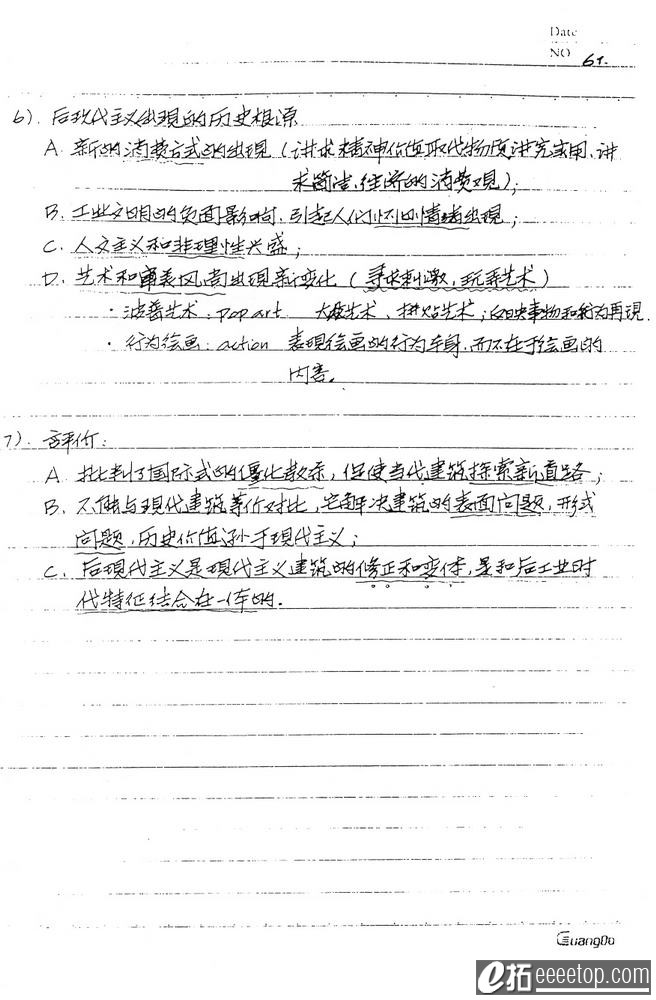 Date
NO 61.
6). 后现代主义出现的历史根源
A. 新的消费方式的出现 (讲求精神价值取代物质讲究实用、讲
求简洁、经济的消费观);
B. 工业文明的负面影响, 引起人们怀旧情绪出现;
C. 人文主义和非理性兴盛;
D. 艺术和审美风尚出现新变化 (寻求刺激, 玩弄艺术)
· 波普艺术: pop art 大众艺术、拼贴艺术; 反映事物和行为再现.
· 行为绘画: action 表现绘画的行为本身, 而不在于绘画的
内容.
7). 评价:
A. 批判了国际式的僵化教条, 促使当代建筑探索新道路;
B. 不能与现代建筑等价对比, 它解决建筑的表面问题, 形式
问题, 历史价值小于现代主义;
C. 后现代主义是现代主义建筑的修正和变体, 是和后工业时
代特征结合在一体的.
GuangBo
e拓 eeeetop.com